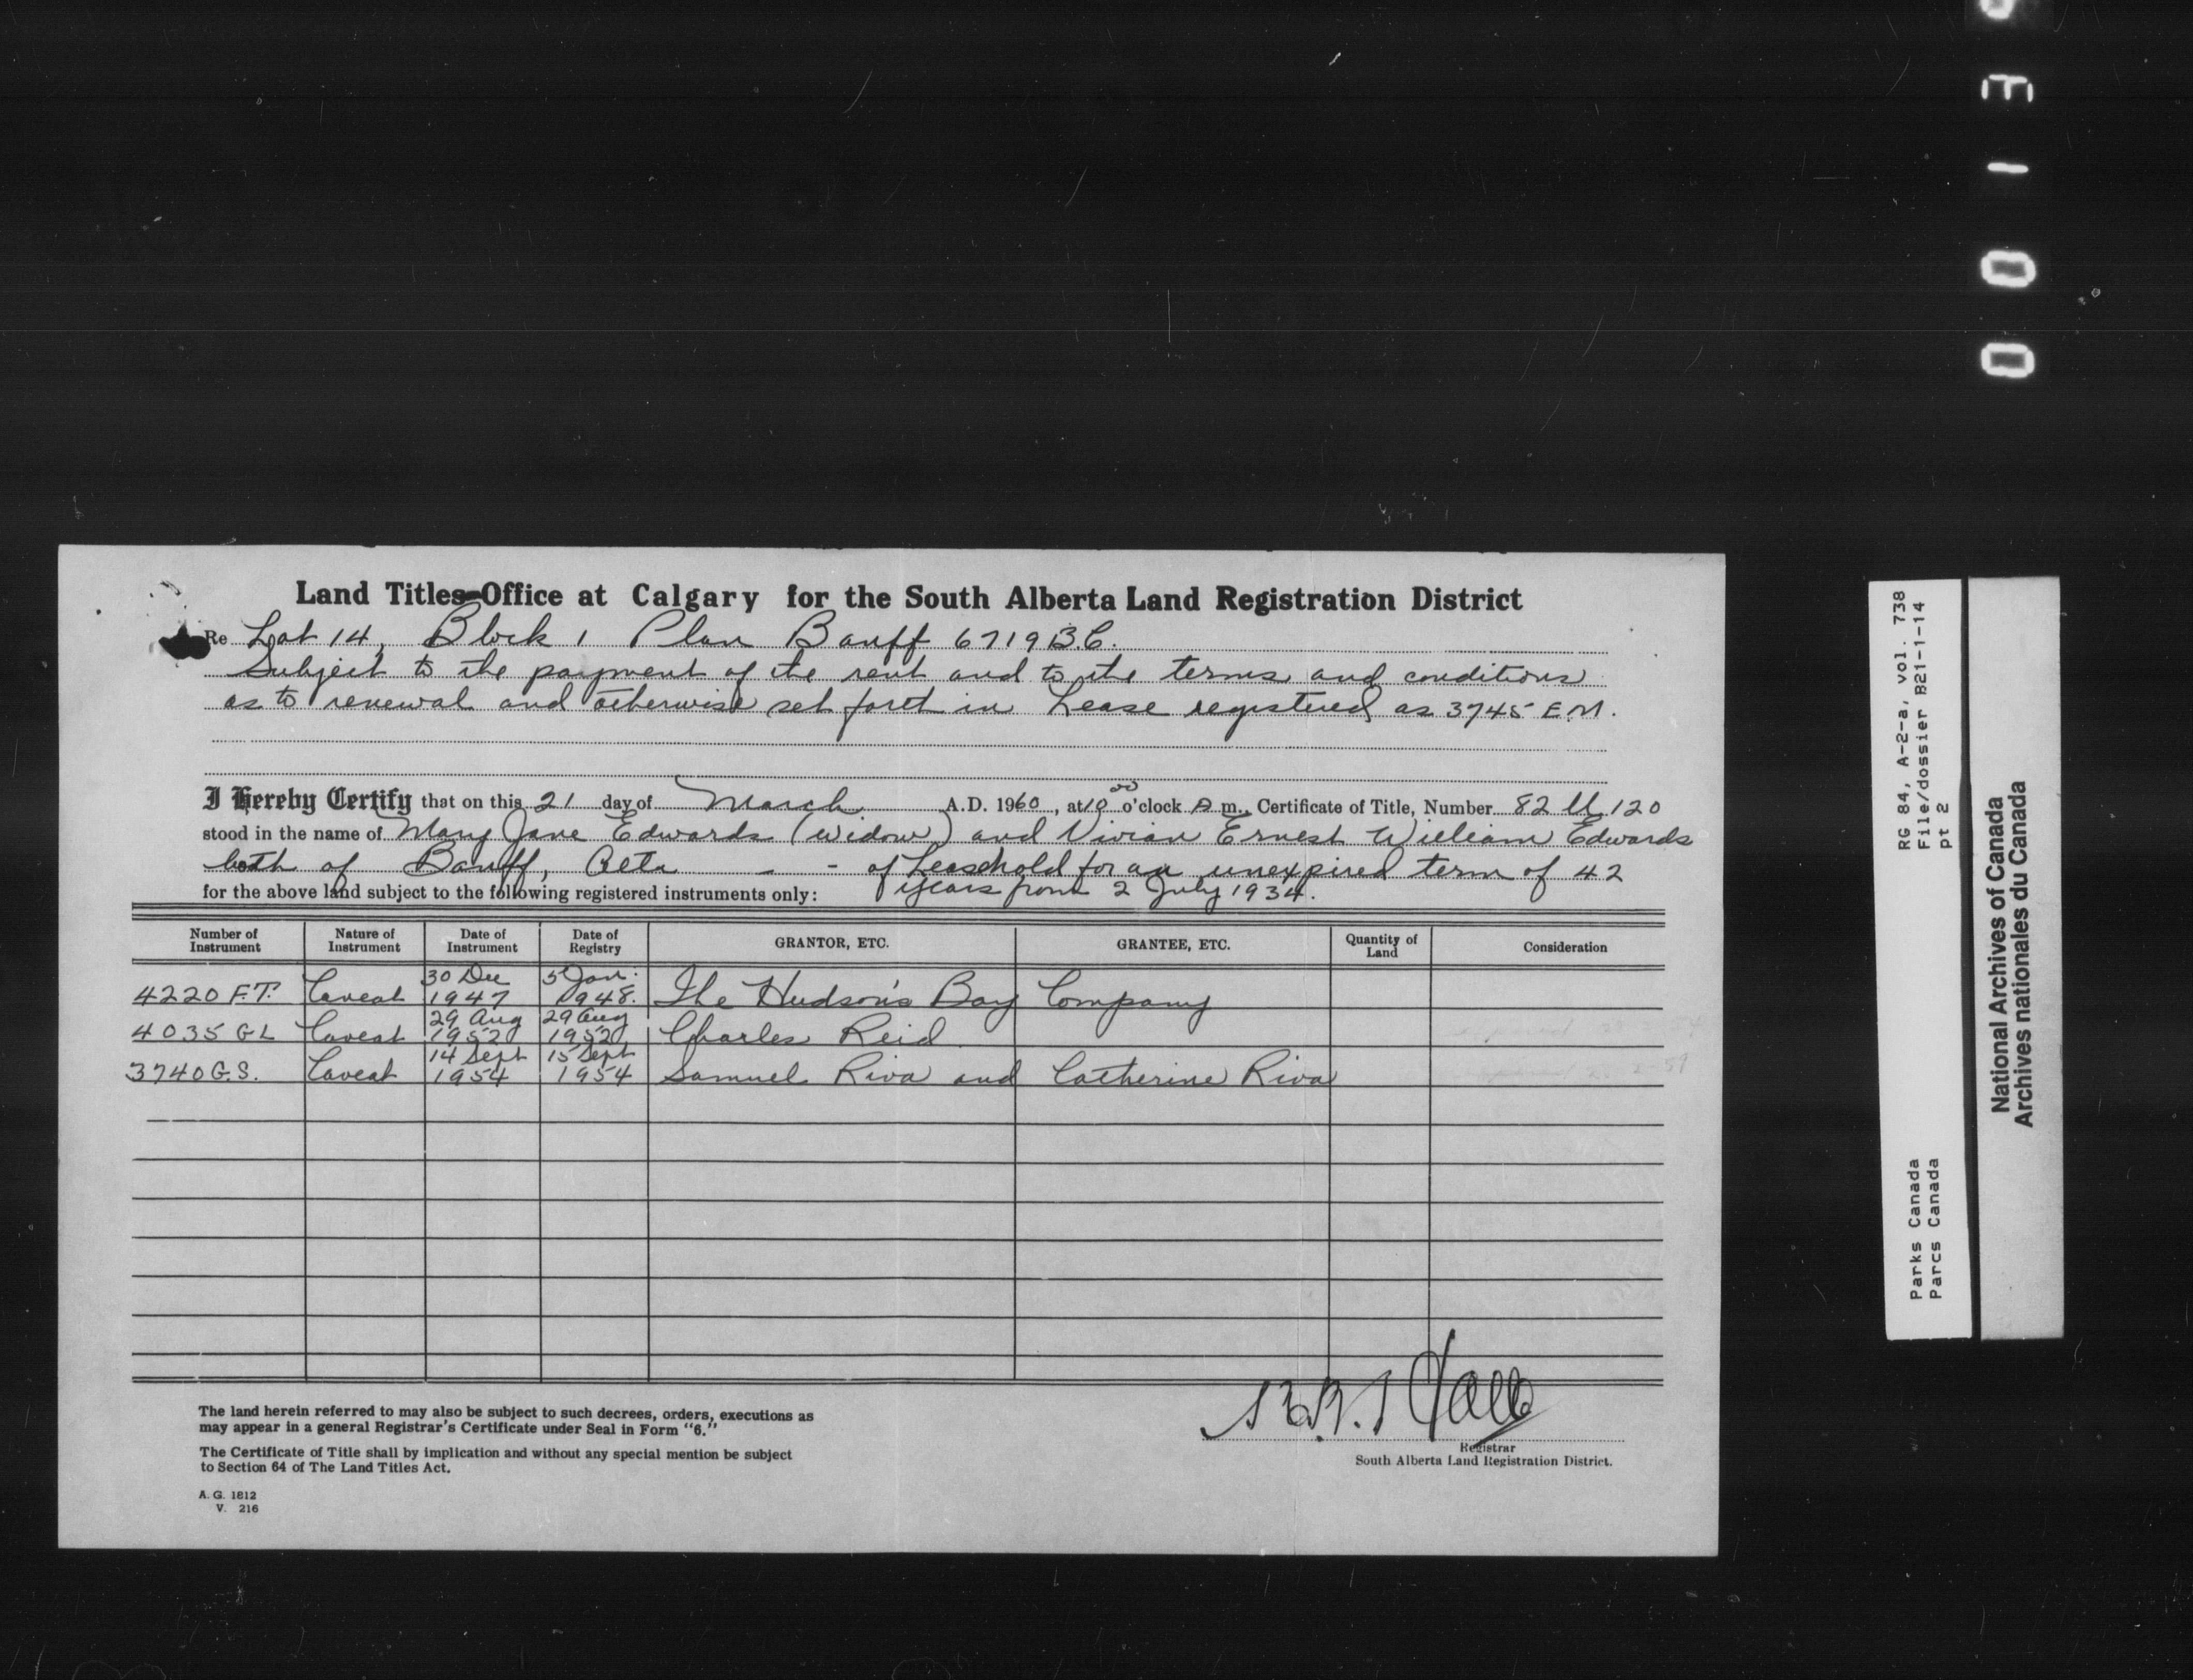 Land Titles Office at Calgary for the South Alberta Land Registration District
Re Lot 14, Block 1 Plan Banff 6719 B.C.
Subject to the payment of the rent and to the terms and conditions
as to renewal and otherwise set forth in Lease registered as 3745 E.M.
I Hereby Certify that on this 21 day of March A.D. 1960, at 10 00 o'clock A m., Certificate of Title, Number 82 U 120
stood in the name of Mary Jane Edwards (widow) and Vivian Ernest William Edwards
both of Banff, Alta - - of Leasehold for an unexpired term of 42
for the above land subject to the following registered instruments only: years from 2 July 1934.
Number of Instrument Nature of Instrument Date of Instrument Date of Registry GRANTOR, ETC. GRANTEE, ETC. Quantity of Land Consideration
4220 F.T. Caveat 30 Dec 1947 5 Jan. 1948. The Hudson's Bay Company
4035 GL Caveat 29 Aug 1952 29 Aug 1952 Charles Reid
3740 G.S. Caveat 14 Sept 1954 15 Sept 1954 Samuel Riva and Catherine Riva
The land herein referred to may also be subject to such decrees, orders, executions as
may appear in a general Registrar's Certificate under Seal in Form "6."
The Certificate of Title shall by implication and without any special mention be subject
to Section 64 of The Land Titles Act.
A. G. 1812
V. 216
Registrar
South Alberta Land Registration District.
RG 84, A-2-a, vol. 738
File/dossier B21-1-14
pt 2
Parks Canada
Parcs Canada
National Archives of Canada
Archives nationales du Canada
0 0 1 3